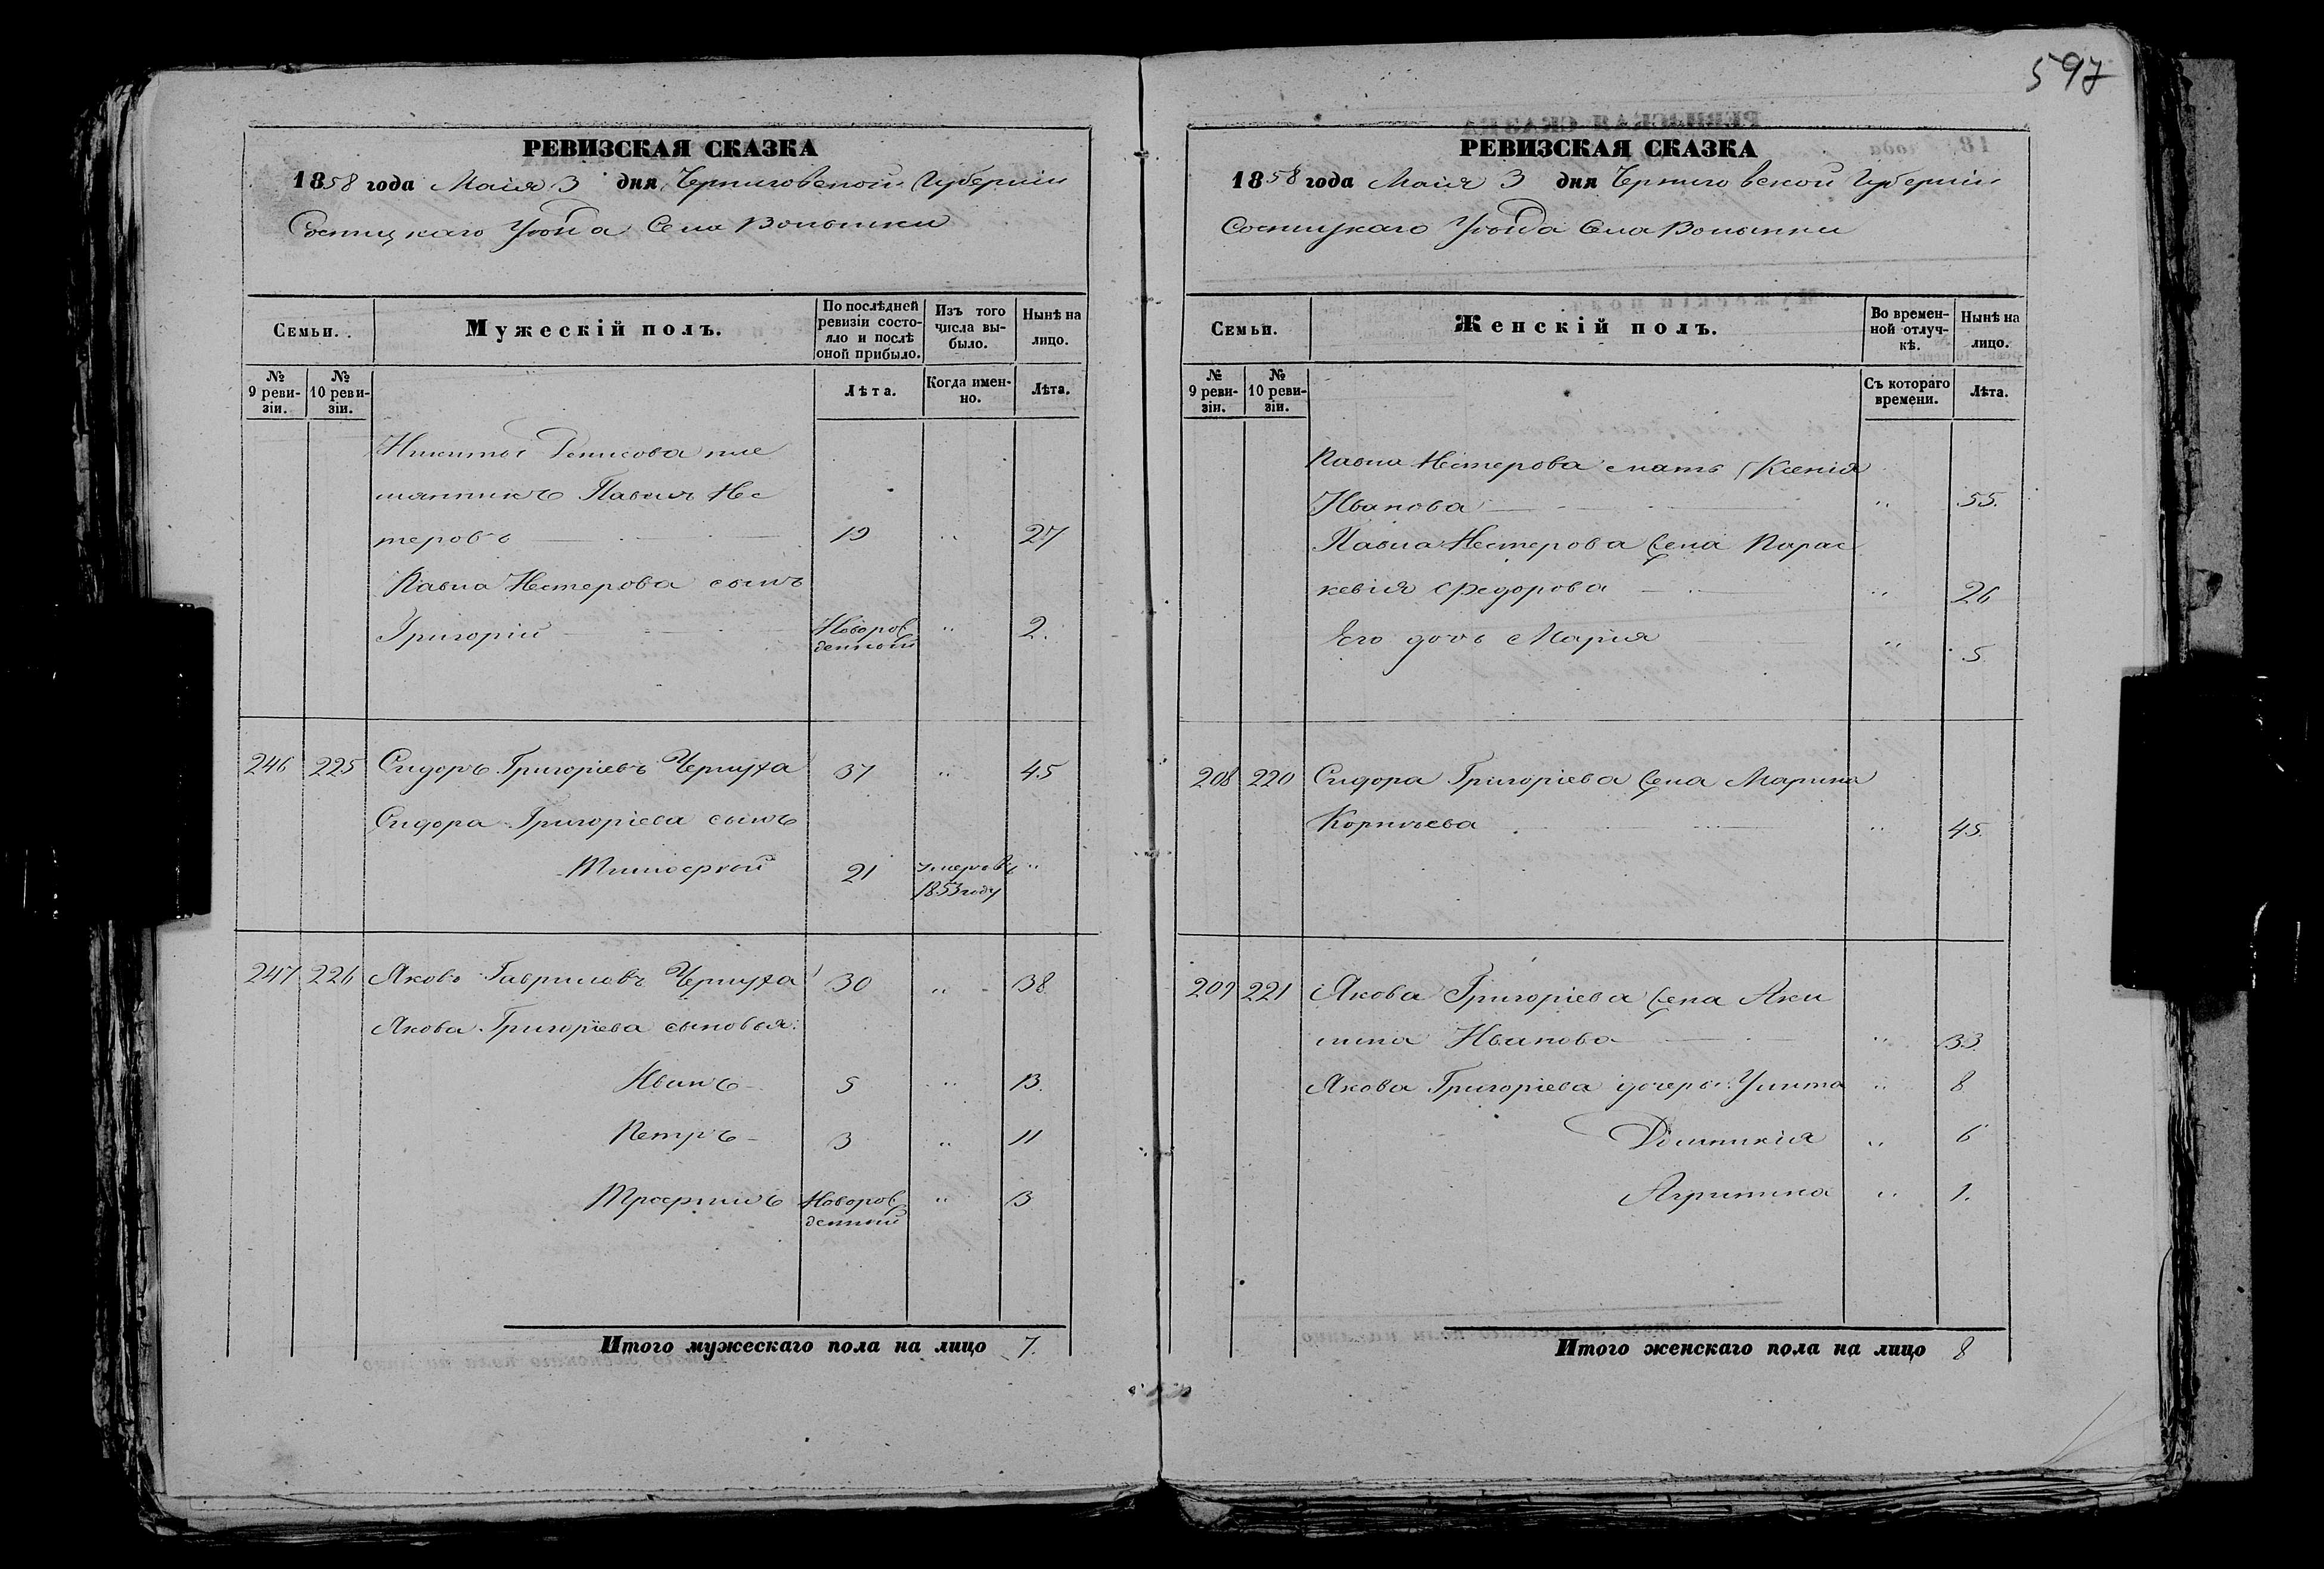 597
РЕВИЗСКАЯ СКАЗКА
1858 года Маія 3 дня Черниговской Губерніи
Сосницкаго Уѣзда Села Волынки
Семьи.
Мужескій полъ.
По послѣдней ревизіи состояло и послѣ оной прибыло.
Изъ того числа выбыло.
Нынѣ на лицо.
№ 9 ревизіи.
№ 10 ревизіи.
Лѣта.
Когда именно.
Лѣта.
Никиты Денисова пле
мянникъ Павелъ Нес
теровъ 19 " 27
Павла Нестерова сынъ
Григорій Новорожденный " 2.
246 225 Сидоръ Григоріевъ Чернуха 37 " 45
Сидора Григоріева сынъ
Тимофей 21 умеръ въ 1853 году "
247 226 Яковъ Гавриловъ Чернуха 30 " 38
Якова Григоріева сыновья:
Иванъ 5 " 13.
Петръ 3 " 11
Трофимъ Новорожденный " 3
Итого мужескаго пола на лицо 7.
РЕВИЗСКАЯ СКАЗКА
1858 года Маія 3 дня Черниговской Губерніи
Сосницкаго Уѣзда Села Волынки
Семьи.
Женскій полъ.
Во временной отлучкѣ.
Нынѣ на лицо.
№ 9 ревизіи.
№ 10 ревизіи.
Съ котораго времени.
Лѣта.
Павла Нестерова мать Ксенія
Иванова " 55.
Павла Нестерова жена Парас
кевія Федорова " 26
Его дочь Марія " 5.
208 220 Сидора Григоріева жена Марина
Корнѣева " 45.
209 221 Якова Григоріева жена Аки
лина Иванова " 33
Якова Григоріева дочеры: Улита " 8
Домникія " 6
Агрипина " 1.
Итого женскаго пола на лицо 8